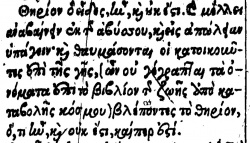 Θηρίον ὃ εἶδες, ἦν, κ̀ οὐκ ἔςι. κ̀ μέλλει
ἀναβαίνειν ἐκ τ͂ ἀβύσσου, κ̀ εἰς ἀπώλειαν
ὑπάγειν· κ̀ θαυμάσονται οἱ κατοικοῦν-
τες ἐπὶ τῆς γῆς, (ὧν οὐ γέγραπται τὰ ὀνό-
νόματα ἐπὶ τὸ βιβλίον τ͂ ζωῆς ὑπὸ κα-
ταβολῆς κόσμου) βλέποντες τὸ θηρίον,
ὅ, τι ἦν, κ̀ οὐκ ἔςι, καίπερ ἐςί.